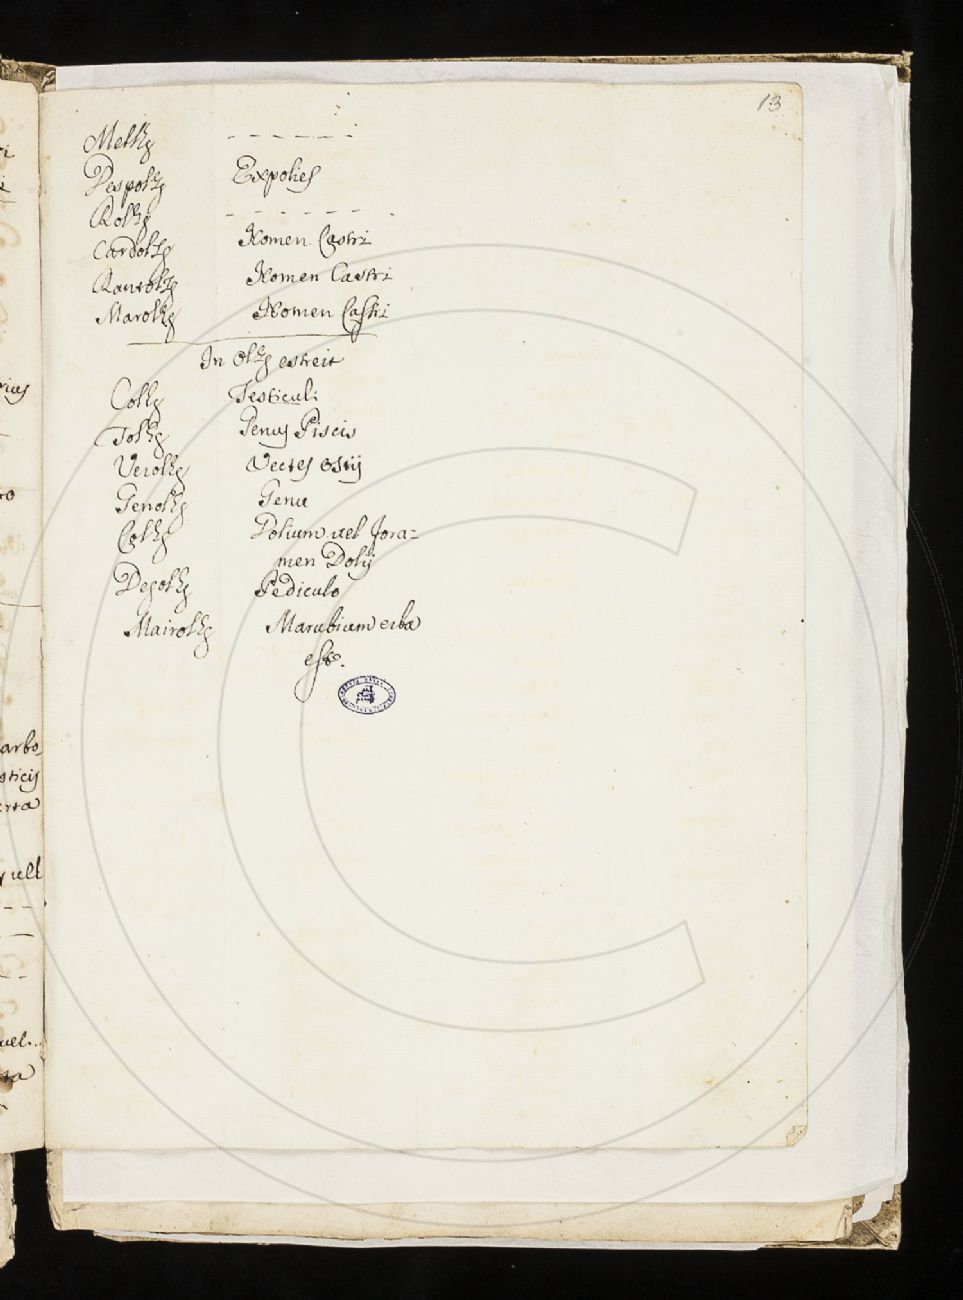 13
Molhz - - - - - -
Despolhz Expolies
Rolhz - - - - - -
Cardolhz Nomen Castri
Rantolhz Nomen Castri
Marolhz Nomen Castri
In Olhz estreit
Colhz Testiculi
Tolhz Penus Piscis
Verolhz Vectes Ostij
Genolhz Genu
Colhz Dolium uel fora=
men Dolij
Pezolhz Pediculo
Mairolhz Marubium erba
est.